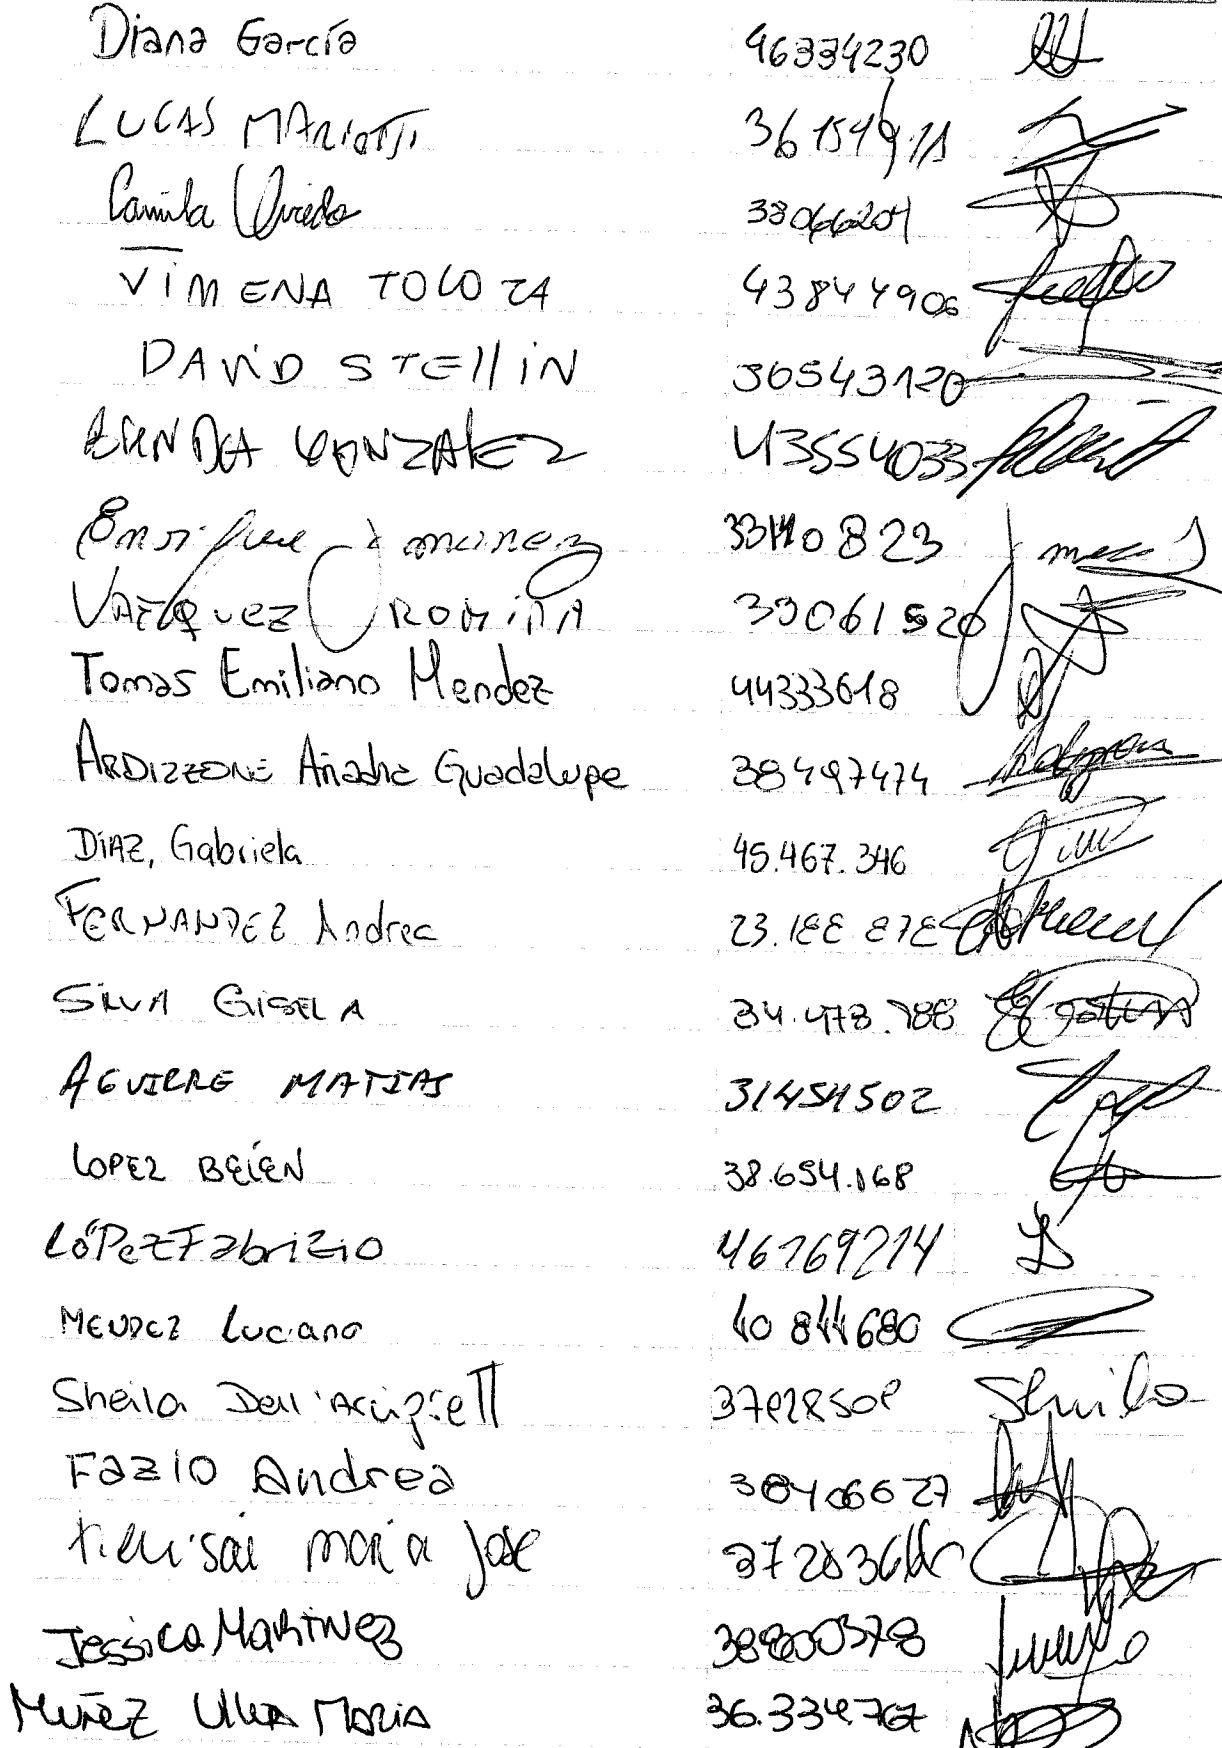 Diana García 46334230
LUCAS MARIOTTI 36154911
Camila Oviedo 38066204
JIMENA TOLOZA 43844906
DAVID STELLIN 36543120
GONZALEZ 43554033
Enrique Jimenez 33110823
VAZQUEZ ROMINA 33061520
Tomas Emiliano Mendez 44333618
ARDIZZONE Ariadne Guadalupe 38497474
DIAZ, Gabriela 45.467.346
FERNANDEZ Andrea 23.188.878
SILVA GISELA 34.473.788
AGUIRRE MATIAS 31454502
LOPEZ BELÉN 38.654.168
LóPez Fabrizio 46769214
MENDEZ Luciano 40844680
Sheila Dell' Sheila
Fazio Andrea 38406627
maria José
Jessica Martinez 38800378
MUÑEZ MARIA 36.334.767